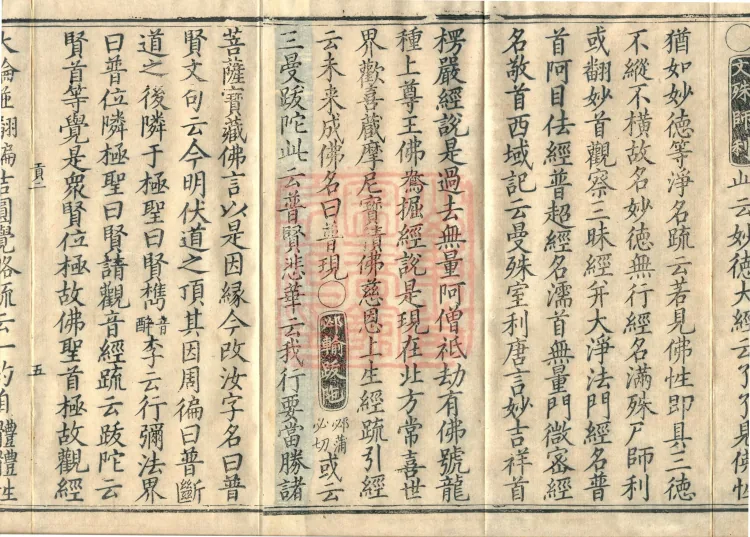 ○文殊師利此云妙德大經云了了見佛性
猶如妙德等淨名疏云若見佛性即具三德
不縱不橫故名妙德無行經名滿殊尸師利
或翻妙首觀察三昧經并大淨法門經名普
首阿目佉經普超經名濡首無量門微密經
名敬首西域記云曼殊室利唐言妙吉祥首
楞嚴經說是過去無量阿僧祇劫有佛號龍
種上尊王佛鴦掘經說是現在北方常喜世
界歡喜藏摩尼寶積佛慈恩上生經疏引經
云未来成佛名曰普現○邲輸跋陀邲蒲必切或云
三曼跋陀此云普賢悲華云我行要當勝諸
菩薩寶藏佛言以是因緣今改汝字名曰普
賢文句云今明伏道之頂其因周徧曰普斷
道之後隣于極聖曰賢檇音醉李云行彌法界
曰普位隣極聖曰賢請觀音經疏云跋陀云
賢首等覺是衆賢位極故佛聖首極故觀經
貢二 五
翻徧吉圓覺略疏云一約自體體性